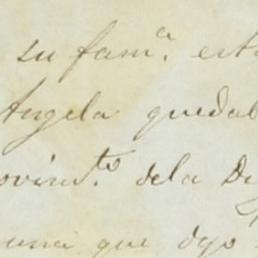 su fam.ª est
Angela quedab
ovim.to dela De
una que dejo